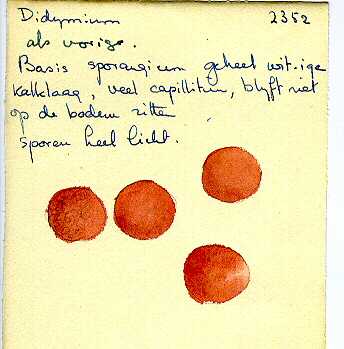 Didymium 2352
als vorige.
Basis sporangium geheel wit-ige
kalklaag, veel capillitium, blyft niet
op de bodem zitten
sporen heel licht.